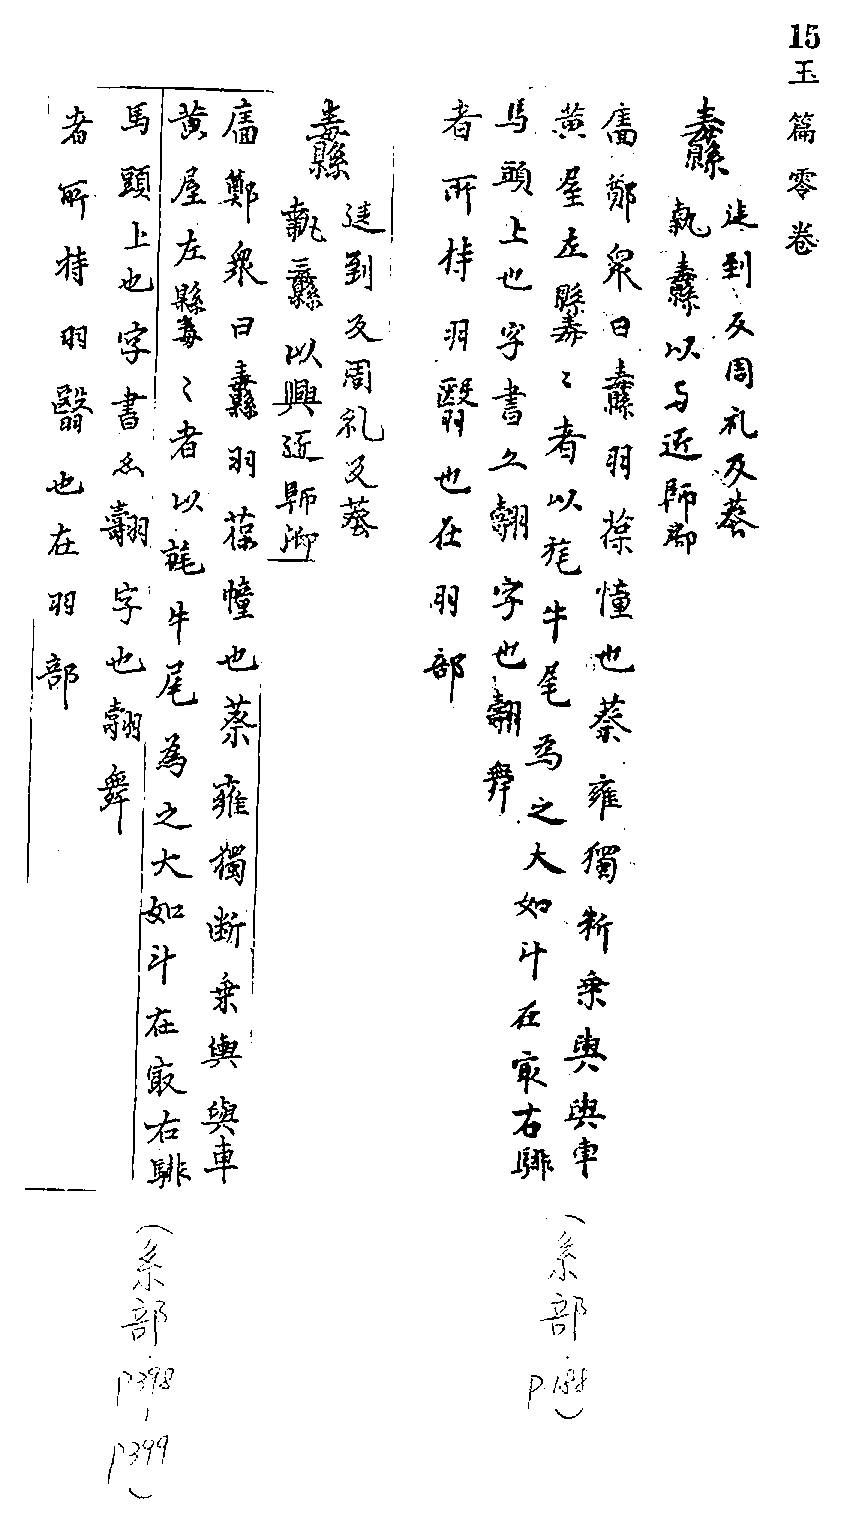 15
玉篇零卷
纛
徒到反周礼及葬
執纛以与近師御
廧鄭眾曰纛羽葆憧也蔡雍獨斷乗輿輿車
黄屋左縣纛〻者以旄牛尾為之大如斗在冣右騑
馬頭上也字書亦翿字也翿舞
者所持羽翳也在羽部
(糸部 P.188)
纛
徒到反周礼及葬
執纛以興近師御
廧鄭眾曰纛羽葆幢也蔡雍獨断乗輿與車
黄屋左縣纛〻者以旄牛尾為之大如斗在冣右騑
馬頭上也字書亦翿字也翿舞
者所持羽翳也在羽部
(糸部 P398-P399)